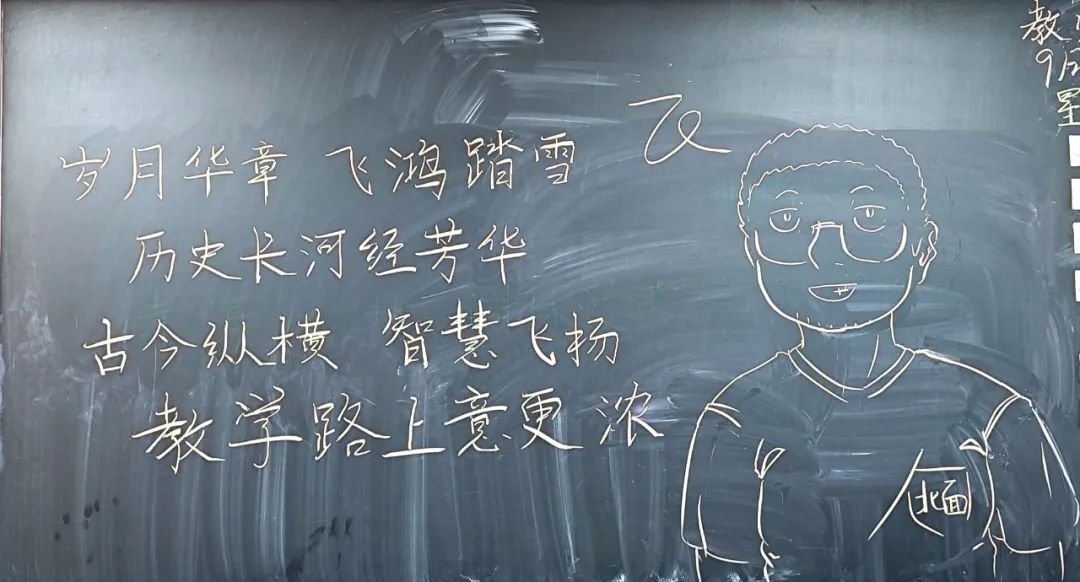 岁月华章 飞鸿踏雪
历史长河经芳华
古今纵横 智慧飞扬
教学路上意更浓
飞
北面
教
9月
星